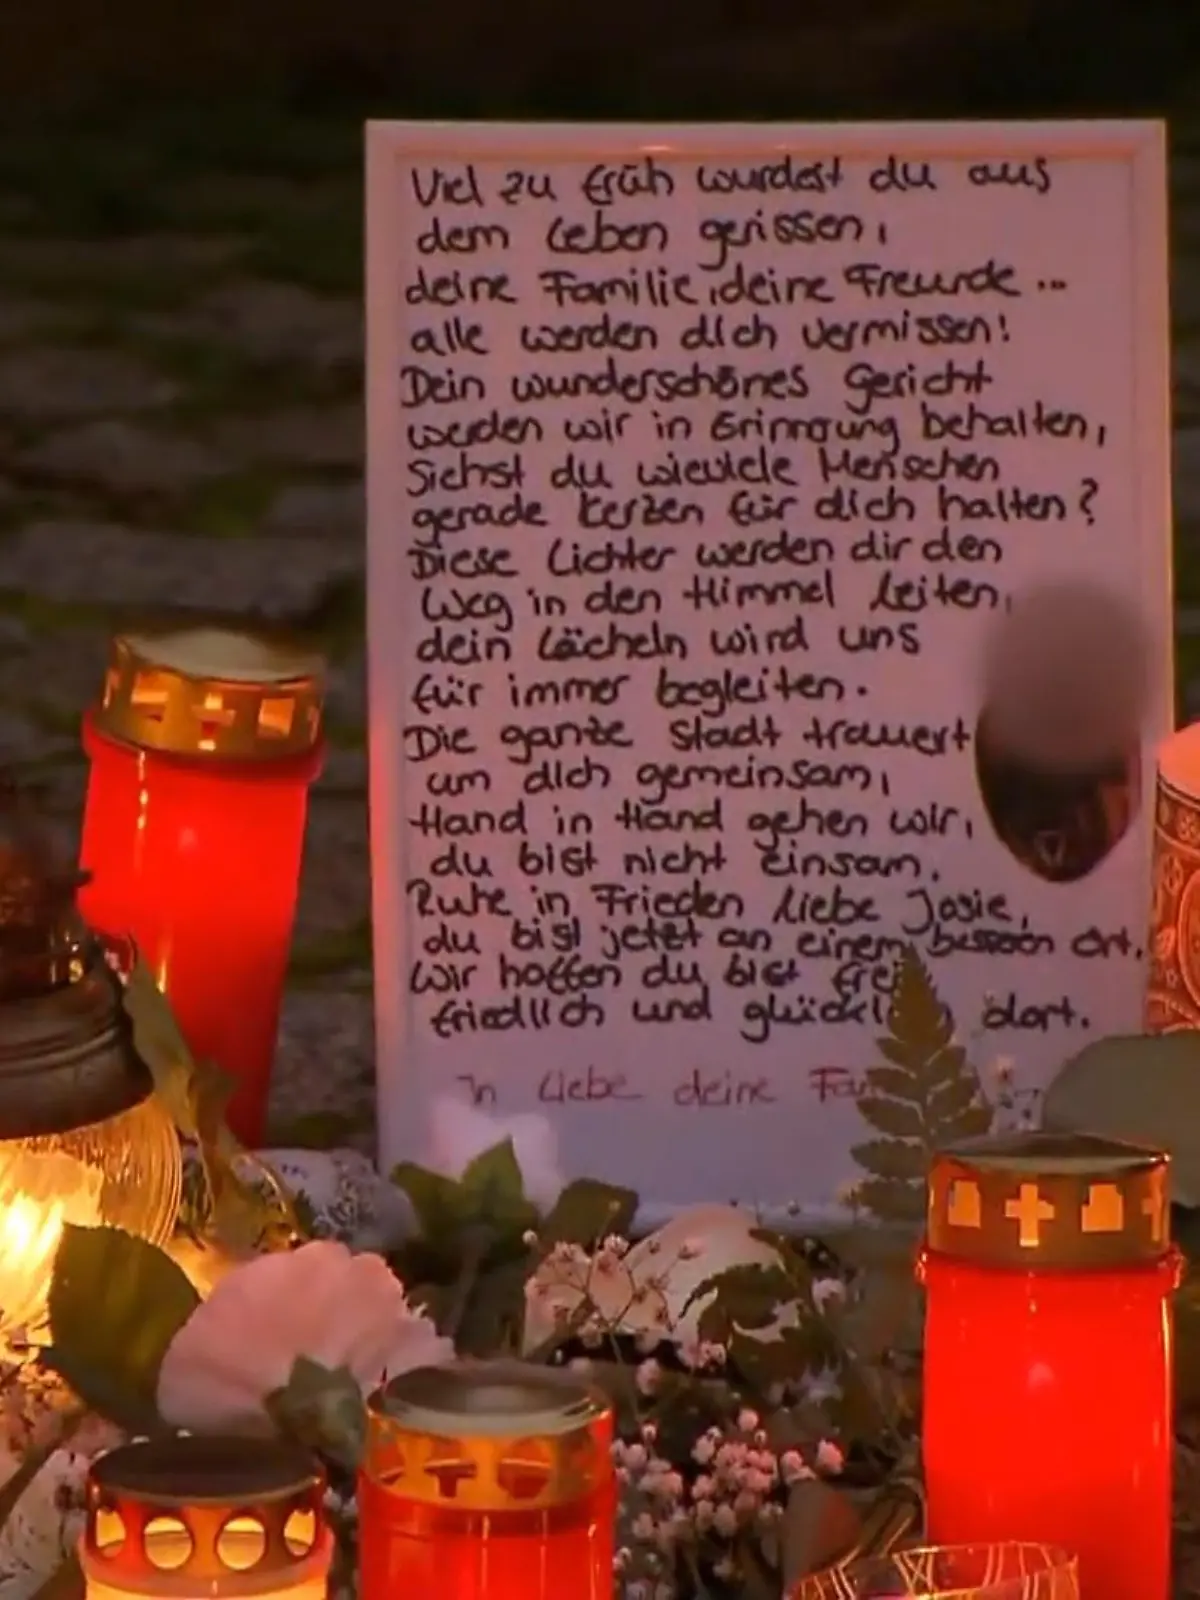 Viel zu früh wurdest du aus
dem Leben gerissen,
deine Familie, deine Freunde ...
alle werden dich vermissen!
Dein wunderschönes Gericht
werden wir in Erinnrung behalten,
Siehst du wieviele Menschen
gerade Kerzen für dich halten?
Diese Lichter werden dir den
Weg in den Himmel leiten,
dein Lächeln wird uns
für immer begleiten.
Die ganze Stadt trauert
um dich gemeinsam,
Hand in Hand gehen wir,
du bist nicht einsam.
Ruhe in Frieden liebe Josie,
du bist jetzt an einem besseren Ort,
Wir hoffen du bist frei
friedlich und dort.
In Liebe deine